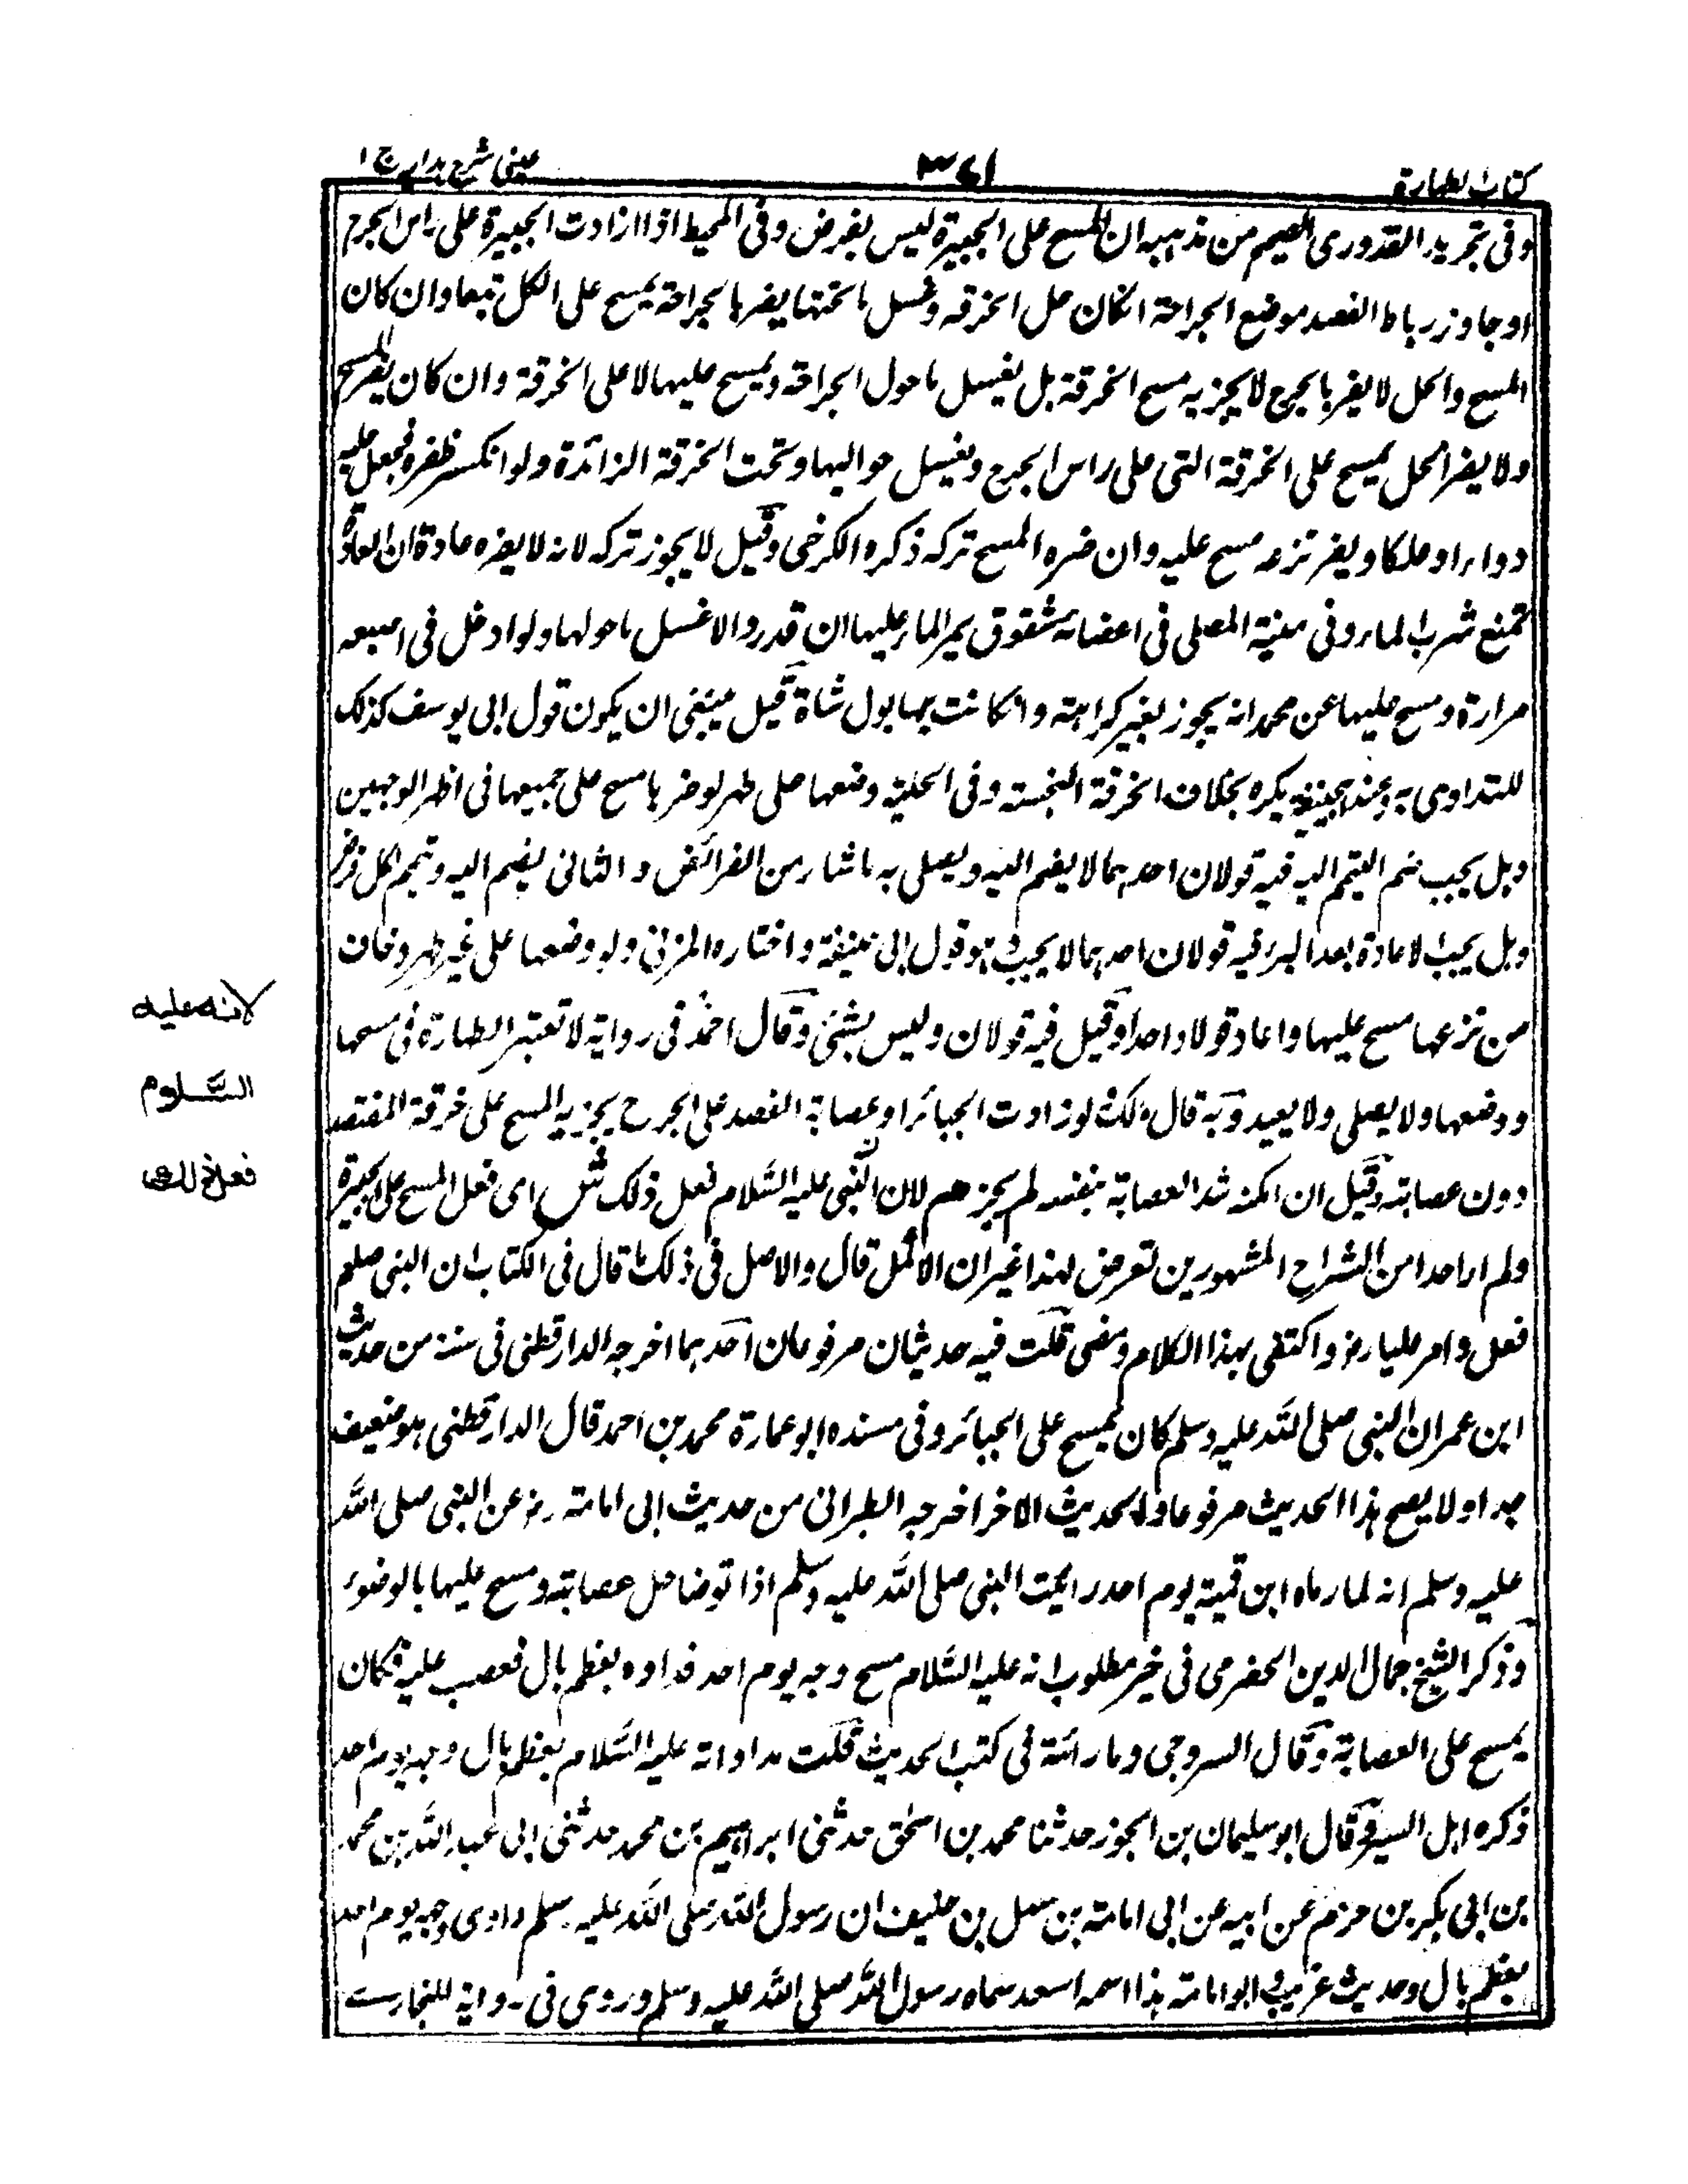 كتاب الطهارة
٣٤١
عينى شرح هدايه ج ١
وفى تجريد القدورى الصحيح من مذهبه ان المسح على الجبيرة ليس بفرض وفى المحيط اذا ازادت الجبيرة على راس الجرح
او جاوز رباط الفصد موضع الجراحة انكان حل الخرقه وغسل ماتحتها يضر بالجراحة يمسح على الكل تبعا وان كان
المسح والحل لا يضر بالجرح لا يجزيه مسح الخرقة بل يغسل ماحول الجراحة ويمسح عليها لا على الخرقة وان كان يضر المسح
ولا يضر الحل يمسح على الخرقة التى على راس الجرح ويغسل حواليها وتحت الخرقة الزائدة ولو انكسر ظفره فجعل عليه
دواء او علكا ويضر نزعه مسح عليه وان ضره المسح تركه ذكره الكرخى وقيل لا يجوز تركه لانه لا يضره عادة ان العادة
تمنع شرب الماء وفى منية المصلى فى اعضائه شقوق يمر الماء عليها ان قدر والا غسل ماحولها ولو ادخل فى اصبعه
مرارة ومسح عليها عن محمد انه يجوز بغير كراهته وانكانت بها بول شاة قيل ينبغى ان يكون قول ابى يوسف كذلك
للتداوى به وعند ابيحنيفة يكره بخلاف الخرقة النجسته وفى الحلية وضعها على طهر لو ضرها مسح على جميعها فى اظهر الوجهين
وهل يجب ضم التيمم اليه فيه قولان احدهما لا يضم اليه ويصلى به ماشاء من الفرائض والثانى يضم اليه وتيمم لكل فرض
وهل يجب الاعادة بعد البرء فيه قولان احدهما لا يجب وهو قول ابى حنيفة واختاره المزنى ولو وضعها على غير طهر وخاف
من نزعها مسح عليها واعاد قولا واحدا وقيل فيه قولان وليس بشئ وقال احمد فى رواية لا تعتبر الطهارة فى مسحها
ووضعها ولا يصلى ولا يعيد وبه قال مالك لو زادت الجبائر او عصابة الفصد على الجرح يجزيه المسح على خرقة المفتصد
دون عصابته وقيل ان امكنه شد العصابة بنفسه لم يجز هم لان النبى عليه السلام فعل ذلك ش اى فعل المسح على الجبيرة
ولم ار احدا من الشراح المشهورين تعرض لهذا غير ان الاكمل قال والاصل فى ذلك ماقال فى الكتاب ان النبى صلعم
فعل وامر عليا رض واكتفى بهذا الكلام ومضى قلت فيه حديثان مرفوعان احدهما اخرجه الدارقطنى فى سننه من حديث
ابن عمر ان النبى صلى الله عليه وسلم كان يمسح على الجبائر وفى مسنده ابو عمارة محمد بن احمد قال الدارقطنى هو ضعيف
جدا ولا يصح هذا الحديث مرفوعا والحديث الاخر اخرجه الطبرانى من حديث ابى امامته رض عن النبى صلى الله
عليه وسلم انه لما رماه ابن قميئة يوم احد رايت النبى صلى الله عليه وسلم اذا توضا حل عصابته ومسح عليها بالوضوء
وذكر الشيخ جمال الدين الحضرمى فى خير مطلوب انه عليه السلام مسح وجه يوم احد فداوه بعظم بال فعصب عليه فكان
يمسح على العصابة وقال السروجى وما رائته فى كتب الحديث قلت مداواته عليه السلام بعظم بال وجهه يوم احد
ذكره اهل السير وقال ابو سليمان بن الجوز حدثنا محمد بن اسحق حدثنى ابراهيم بن محمد حدثنى ابى عبد الله بن محمد
بن ابى بكر بن حزم عن ابيه عن ابى امامته بن سهل بن حنيف ان رسول الله صلى الله عليه وسلم داوى وجهه يوم احد
بعظم بال وحديث غريب وابو امامته هذا اسمه اسعد سماه رسول الله صلى الله عليه وسلم وروى فى رواية للبخارى
لانه عليه
السلام
فعل ذلك